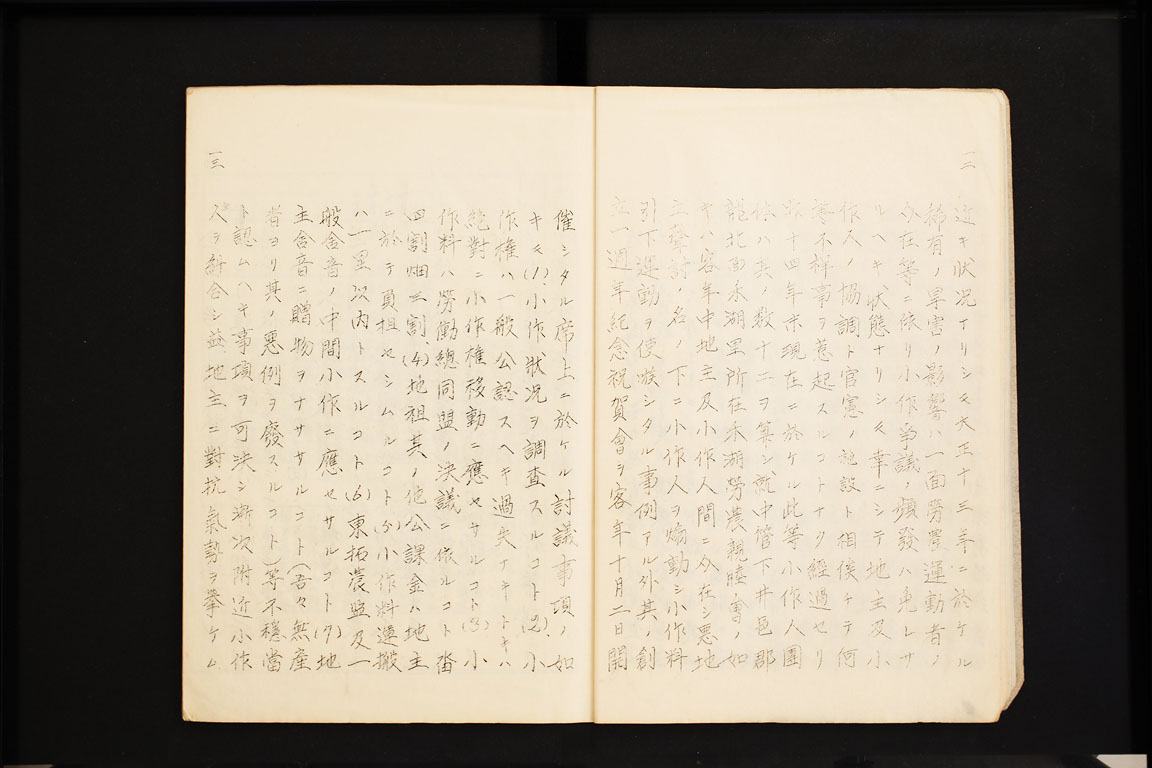 一二
近キ狀況ナリシモ大正十三年ニ於ケル
稀有ノ旱害ノ影響ハ一面勞農運動者ノ
介在等ニ依リ小作爭議ノ頻發ハ免レサ
ルヘキ狀態ナリシモ幸ニシテ地主及小
作人ノ協調ト官憲ノ施設ト相俟チテ何
等不祥事ヲ惹起スルコトナク經過セリ
十四年末現在ニ於ケル此等小作人團
体ハ其ノ數十二ヲ算シ就中管下井邑郡
龍北面禾湖里所在禾湖勞農親睦會ノ如
キハ客年中地主及小作人間ニ介在シ惡地
主聲討ノ名ノ下ニ小作人ヲ煽動シ小作料
引下運動ヲ使嗾シタル事例アル外其ノ創
立一週年紀念祝賀會ヲ客年十月二日開
一三
催シタル席上ニ於ケル討議事項ノ如
キモ(1)、小作狀況ヲ調査スルコト(2)、小
作權ハ一般公認スヘキ過失ナキトキハ
絕對ニ小作權移動ニ應セサルコト(3)小
作料ハ勞働總同盟ノ決議ニ依ルコト畓
四割畑三割、(4)地租其ノ他公課金ハ地主
ニ於テ負担セシムルコト(5)小作料運搬
ハ一里以內トスルコト(6)東拓農監及一
般舍音ノ中間小作ニ應セサルコト(7)地
主舍音ニ贈物ヲナササルコト(吾々無產
者ヨリ其ノ惡例ヲ發スルコト)等不穩當
ト認ムヘキ事項ヲ可決シ漸次附近小作
人ヲ糾合シ益地主ニ對抗氣勢ヲ擧ケム